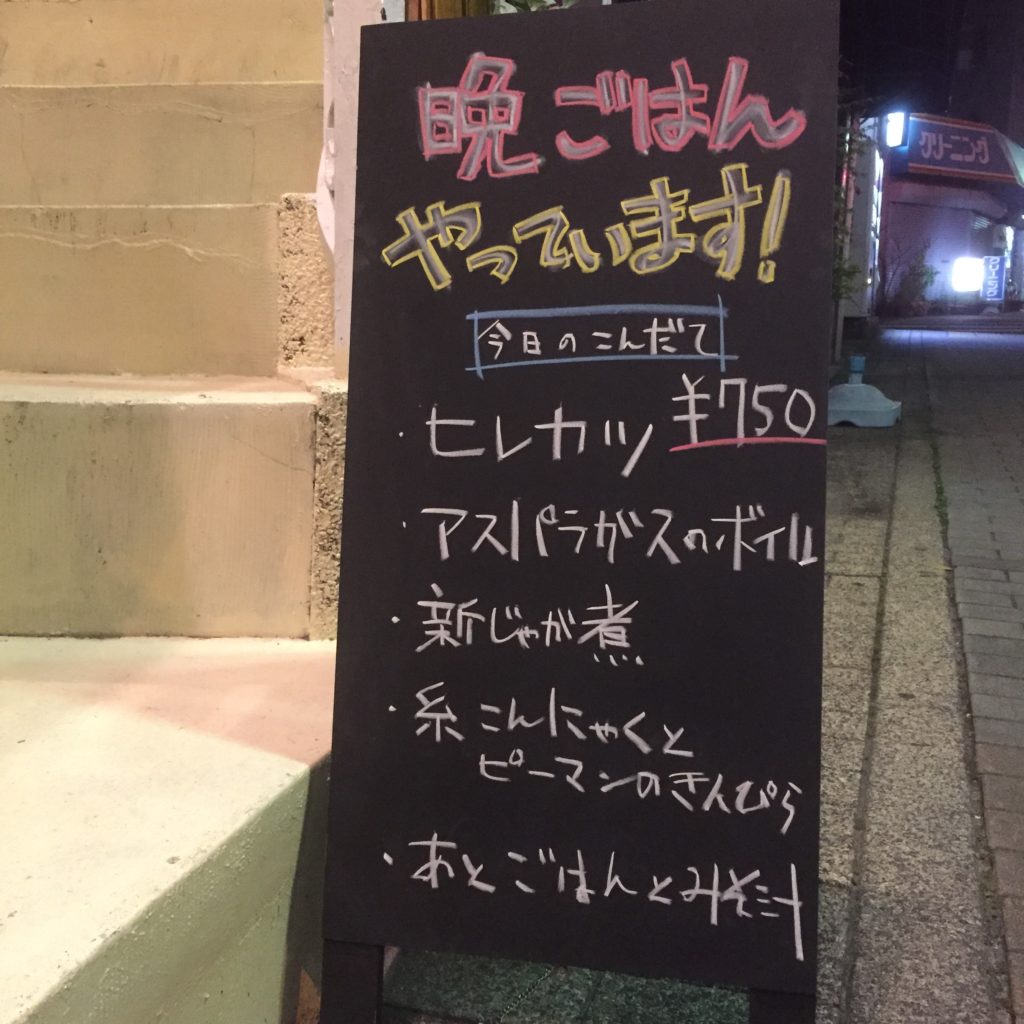 晩ごはん
やっています!
今日のこんだて
・ヒレカツ ¥750
・アスパラガスのボイル
・新じゃが煮
・糸こんにゃくと
ピーマンのきんぴら
・あとごはんとみそ汁
クリーニング